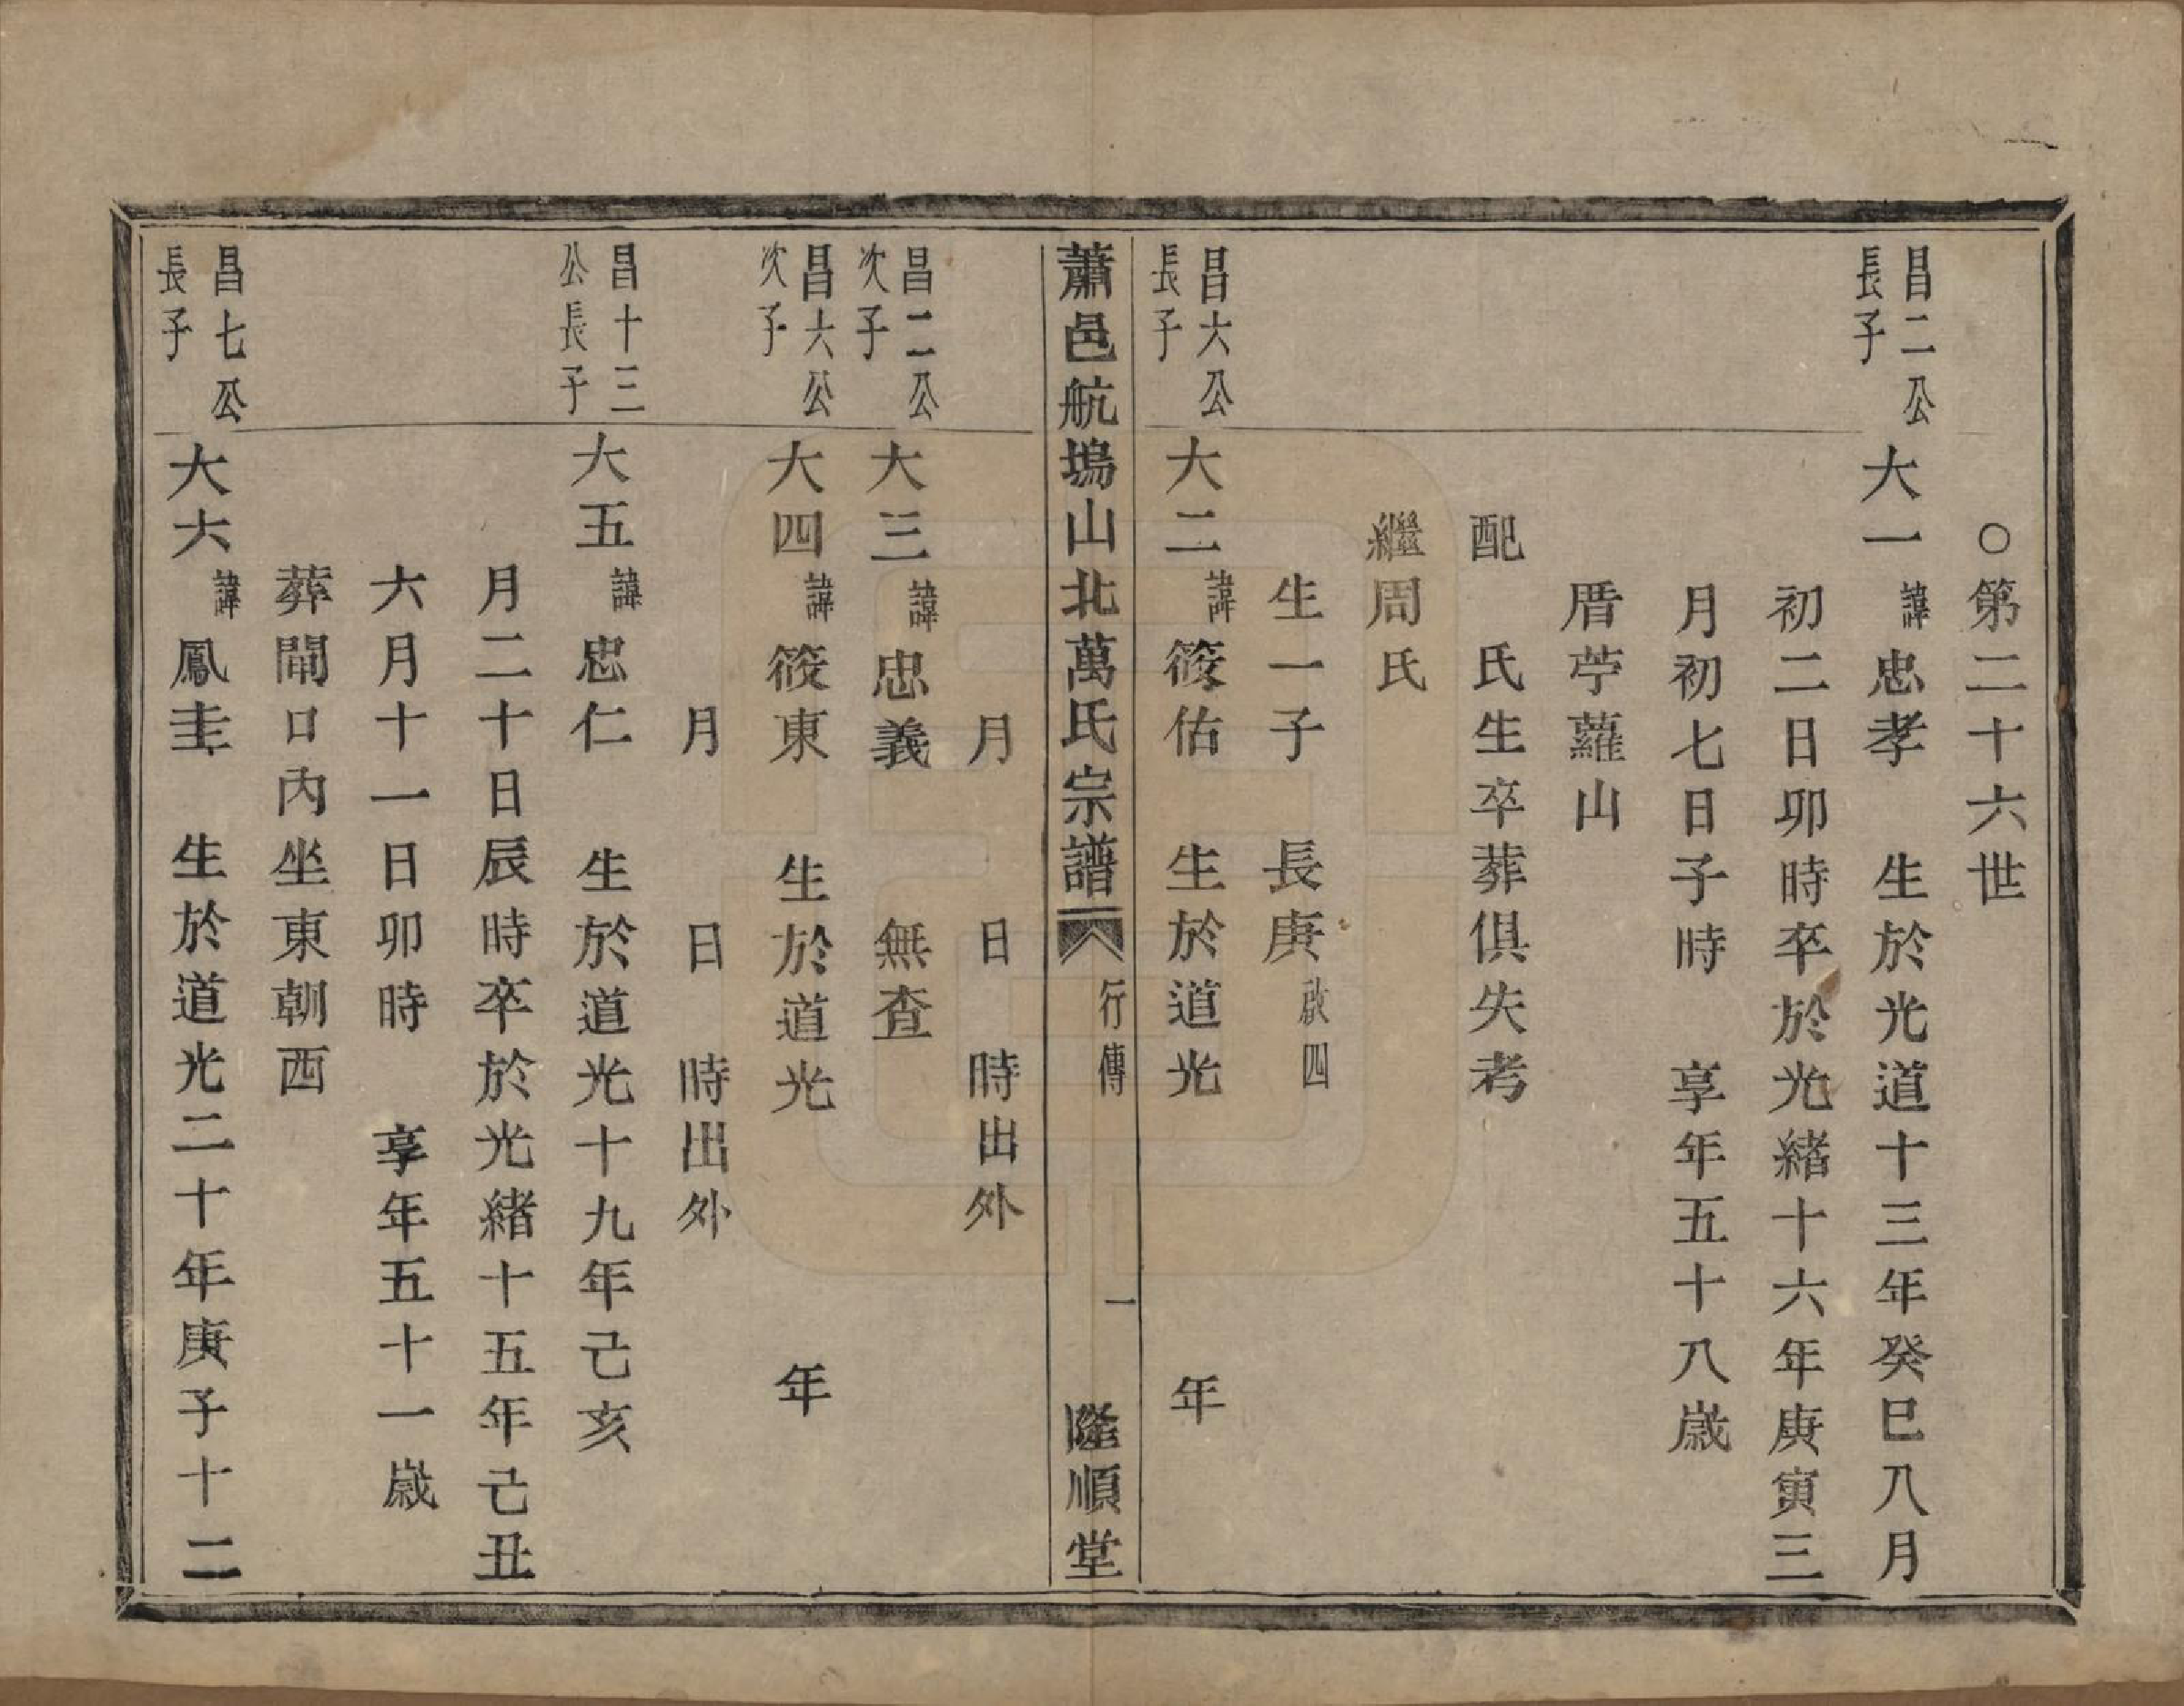 ○第二十六世
昌二公
長子
大一諱忠孝　生於光道十三年癸巳八月
初二日卯時卒於光緒十六年庚寅三
月初七日子時　享年五十八歲
厝苧蘿山
配　氏生卒葬俱失考
繼周氏
生一子　長庚啟四
昌六公
長子
大二諱筱佑　生於道光　年
蕭邑航塢山北萬氏宗譜　行傳　一　隆順堂
月　日　時出外
昌二公
次子
大三諱忠義　無查
昌六公
次子
大四諱筱東　生於道光　年
月　日　時出外
昌十三
公長子
大五諱忠仁　生於道光十九年己亥
月二十日辰時卒於光緒十五年己丑
六月十一日卯時　享年五十一歲
葬閘口內坐東朝西
昌七公
長子
大六諱鳳圭　生於道光二十年庚子十二